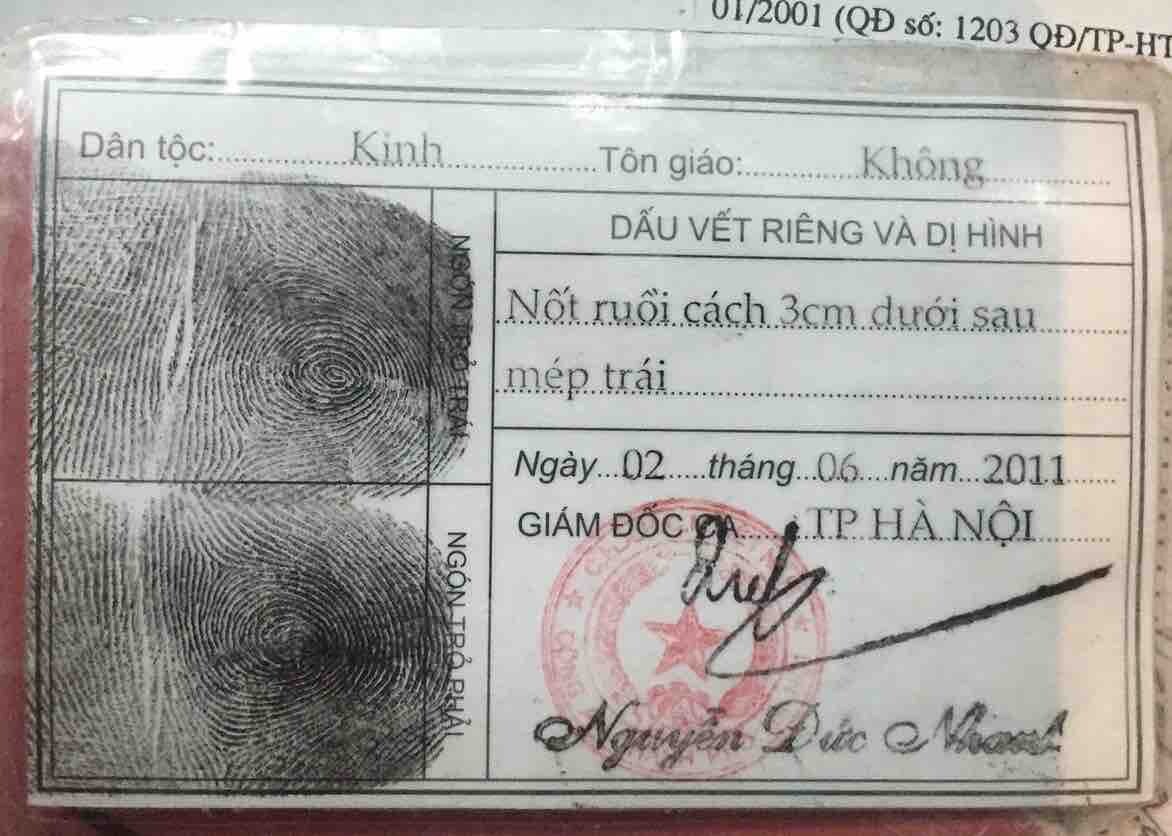 01/2001 (QĐ số: 1203 QĐ/TP-HT
Dân tộc: Kinh Tôn giáo: Không
NGÓN TRỎ TRÁI
NGÓN TRỎ PHẢI
DẤU VẾT RIÊNG VÀ DỊ HÌNH
Nốt ruồi cách 3cm dưới sau
mép trái
Ngày 02 tháng 06 năm 2011
GIÁM ĐỐC CA TP HÀ NỘI
Nguyễn Đức Nhanh